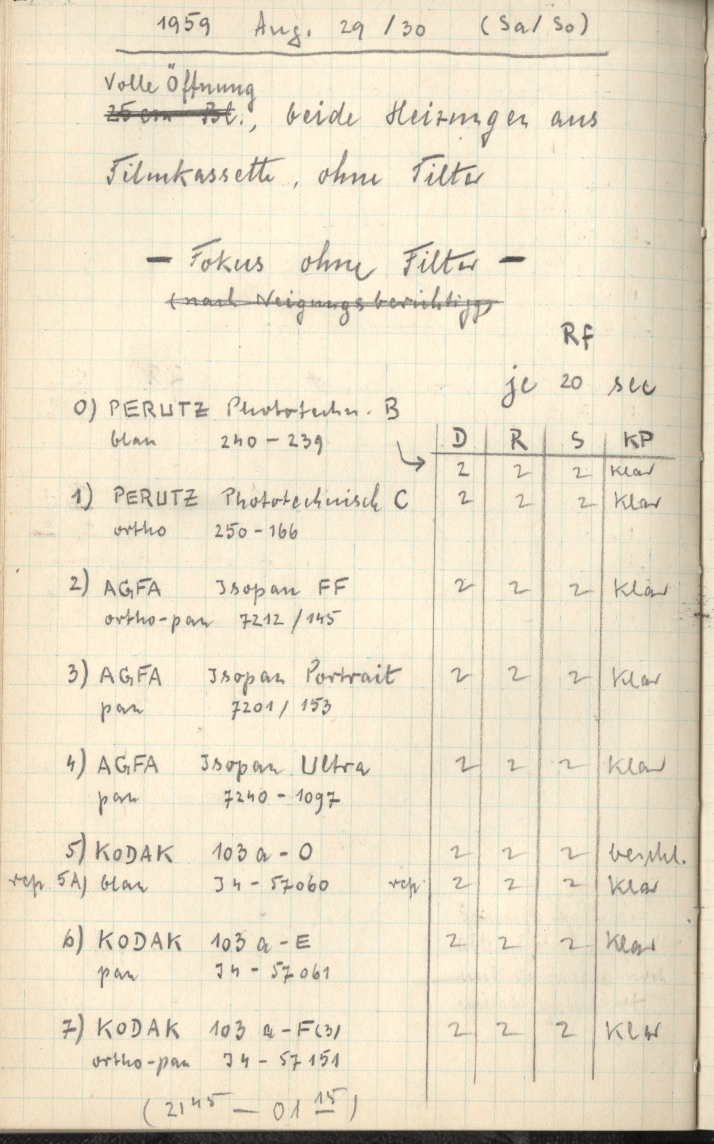 1959 Aug. 29/30 (Sa/So)
Volle Öffnung
25 cm Bl., beide Heizungen aus
Filmkassette, ohne Filter
— Fokus ohne Filter —
(nach Neigungsberichtigg)
Rf
je 20 sec
0) PERUTZ Phototechn. B
blau 240 - 239
D R S KP
2 2 2 klar
1) PERUTZ Phototechnisch C 2 2 2 klar
ortho 250-166
2) AGFA Isopan FF 2 2 2 klar
ortho-pan 7212/145
3) AGFA Isopan Portrait 2 2 2 klar
pan 7201/153
4) AGFA Isopan Ultra 2 2 2 klar
pan 7240-1097
5) KODAK 103 a - O 2 2 2 beschl.
rep 5A) blau J4-57060 rep 2 2 2 klar
6) KODAK 103 a - E 2 2 2 klar
pan J4-57061
7) KODAK 103 a - F(3) 2 2 2 klar
ortho-pan J4-57151
(21 45 — 01 15)